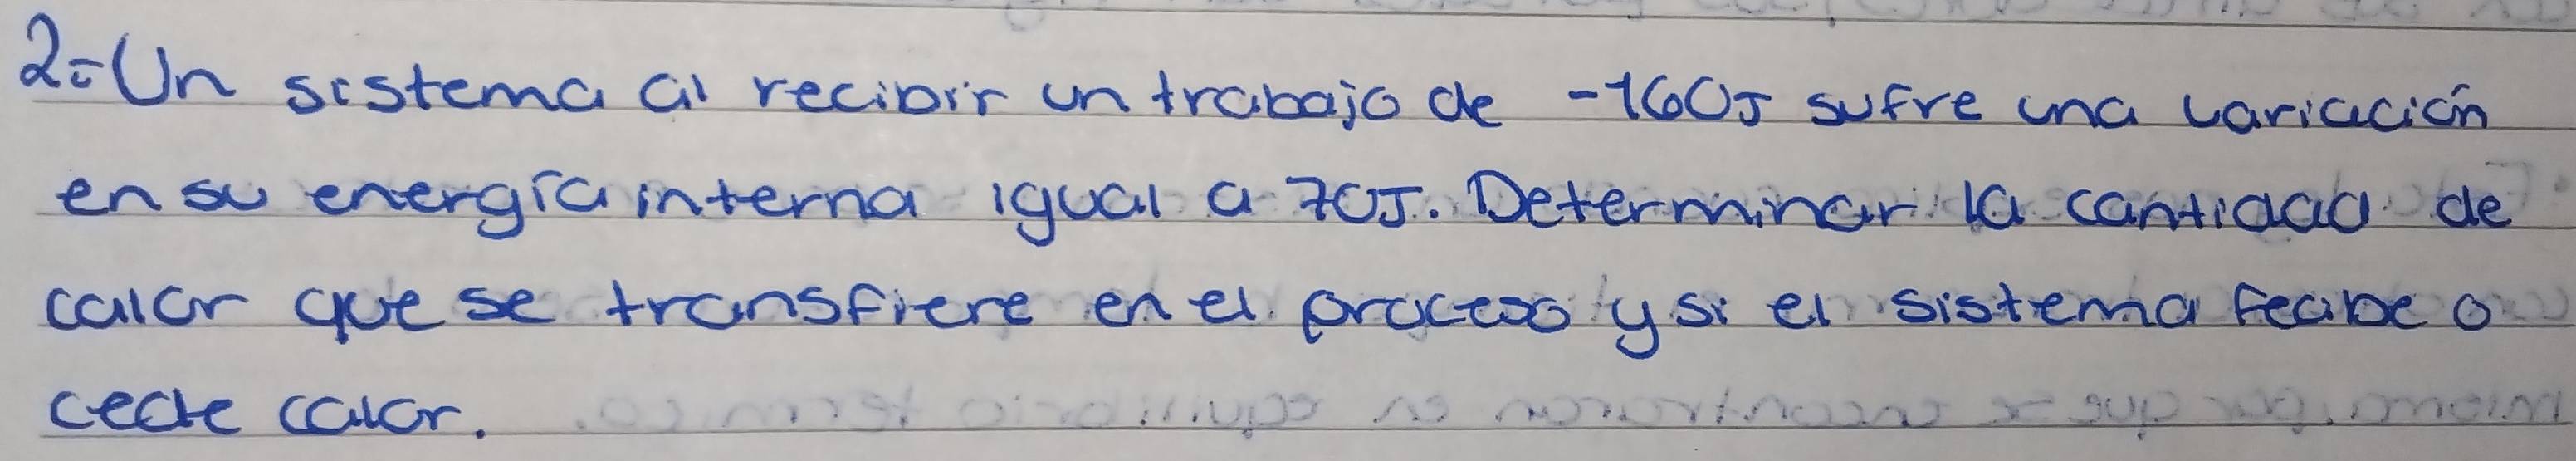 2.- Un sistema al recibir un trabajo de -160J sufre una variación
en su energía interna igual a 70J. Determinar la cantidad de
calor que se transfiere en el proceso y si el sistema recibe o
cede calor.